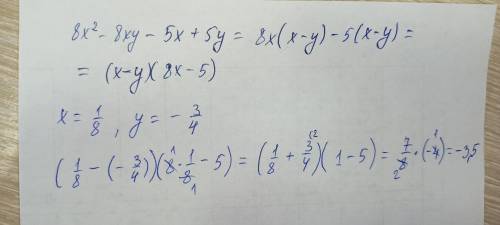 8x² - 8xy - 5x + 5y = 8x(x-y) - 5(x-y) =
= (x-y)(8x-5)
x = 1/8, y = -3/4
(1/8 - (-3/4))(8 · 1/8 - 5) = (1/8 + 3/4)(1-5) = 7/8 · (-4) = -3,5